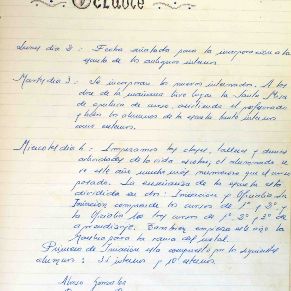 Octubre
Lunes día 2: Fecha señalada para la incorporación a la
escuela de los antiguos internos.
Martes día 3: Se incorporan los nuevos internados. A las
doce de la mañana tuvo lugar la Santa Misa
de apertura de curso, asistiendo el profesorado
y todos los alumnos de la escuela tanto internos
como externos.
Miercoles día 4: Empezamos las clases, talleres y demás
actividades de la vida escolar, el alumnado es
este año mucho más numeroso que el curso
pasado. La enseñanza de la escuela está
dividida en dos: Iniciación y Oficialía. La
Iniciación comprende los cursos de 1º y 2º y
la Oficialía los cursos de 1º 2º y 3º de
aprendizaje. Tambien empieza este año la
Maestría para la rama del metal.
Primero de Iniciación está compuesto por los siguientes
alumnos: 35 internos y 10 externos.
Alonso Gonzalez